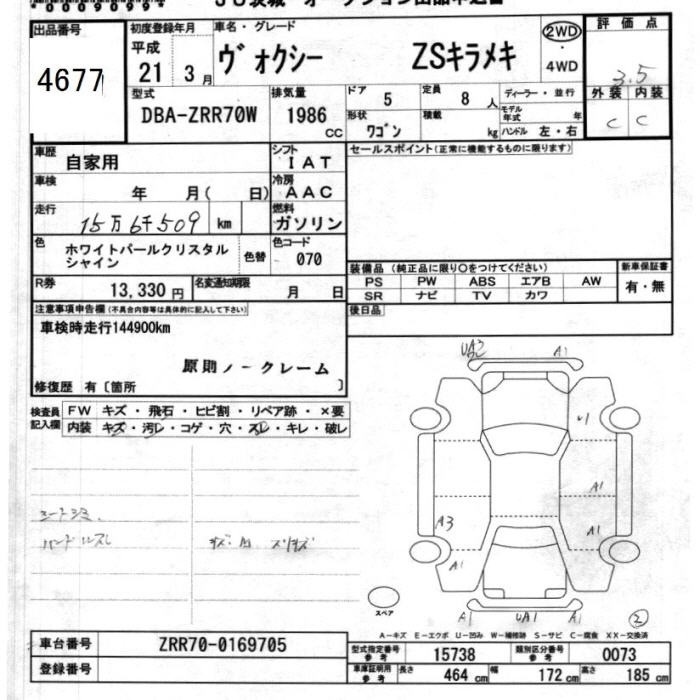 00090994
JU茨城 オークション出品申込書
出品番号
4677
初度登録年月
平成
21年 3月
車名・グレード
ヴォクシー ZSキラメキ
2WD
・
4WD
評価点
3.5
外装 内装
C C
型式
DBA-ZRR70W
排気量
1986 cc
ドア 5
定員 8人
ディーラー・並行
形状 ワゴン
積載 kg
モデル年式 年
ハンドル 左・右
車歴 自家用
シフト IAT
セールスポイント(正常に機能するものに限ります)
車検 年 月( 日)
冷房 AAC
走行 15万6千509 km
燃料 ガソリン
色 ホワイトパールクリスタルシャイン
色替
色コード 070
装備品 (純正品に限り○をつけてください)
新車保証書
PS PW ABS エアB AW
有・無
SR ナビ TV カワ
R券 13,330円
名変通知期限 月 日
後日品
注意事項申告欄(不具合内容等は具体的に記入して下さい)
車検時走行144900km
原則ノークレーム
修復歴 有〔箇所 〕
検査員記入欄
FW キズ・飛石・ヒビ割・リペア跡・×要
内装 キズ・汚レ・コゲ・穴・スレ・キレ・破レ
シートシミ、
ハンドルスレ
UA2 A1
U1
A1
A3 A1
A1
A1 UA1 A1
スペア
2
A-キズ E-エクボ U-凹み W-補修跡 S-サビ C-腐食 XX-交換済
車台番号 ZRR70-0169705
型式指定番号 参考 15738
類別区分番号 参考 0073
登録番号
車庫証明用 参考 長さ 464 cm 幅 172 cm 高さ 185 cm